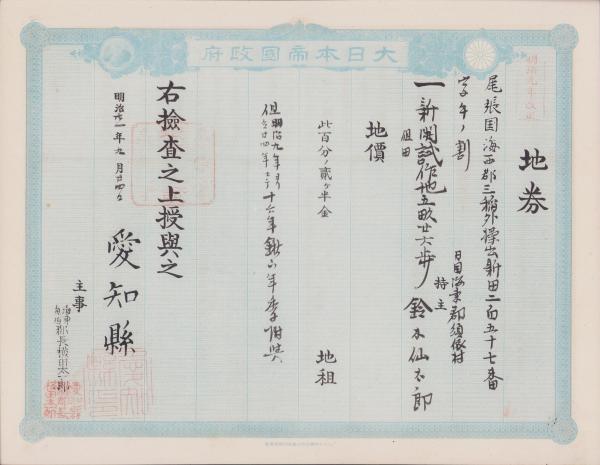 大日本帝國政府
明治九年改正
地券
尾張国海西郡三稲外 新田二百五十七番
字午ノ割
一新開試作地五畝廿六歩
但田
日国海東郡須依村
持主 鈴木仙太郎
地價
此百分ノ貳ヶ半金 地租
但明治九年ヨリ
仝廿四年マテ十六年 六年季
右撿査之上授與之
明治廿一年九月廿四日
愛知縣
主事
海東
海西郡長 田太郎